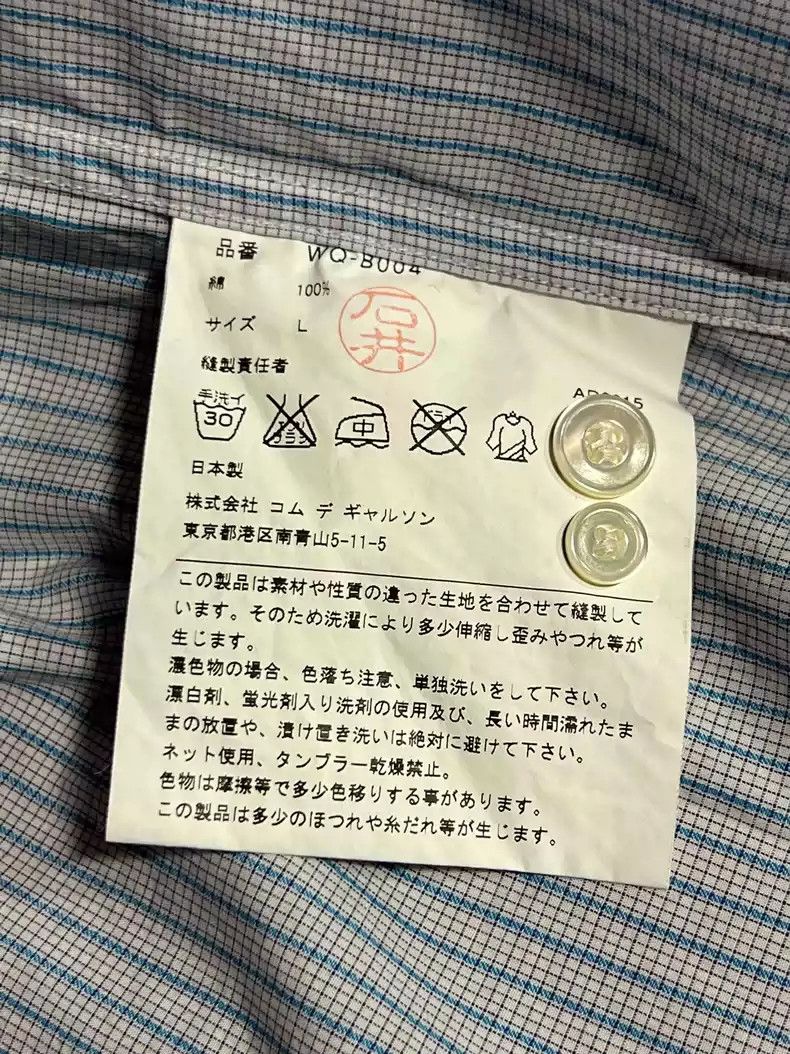 品番 WQ-B004
綿 100%
サイズ L
石井
縫製責任者
手洗イ
30
中
日本製
株式会社 コム デ ギャルソン
東京都港区南青山5-11-5
この製品は素材や性質の違った生地を合わせて縫製して
います。そのため洗濯により多少伸縮し歪みやつれ等が
生じます。
濃色物の場合、色落ち注意、単独洗いをして下さい。
漂白剤、蛍光剤入り洗剤の使用及び、長い時間濡れたま
まの放置や、漬け置き洗いは絶対に避けて下さい。
ネット使用、タンブラー乾燥禁止。
色物は摩擦等で多少色移りする事があります。
この製品は多少のほつれや糸だれ等が生じます。